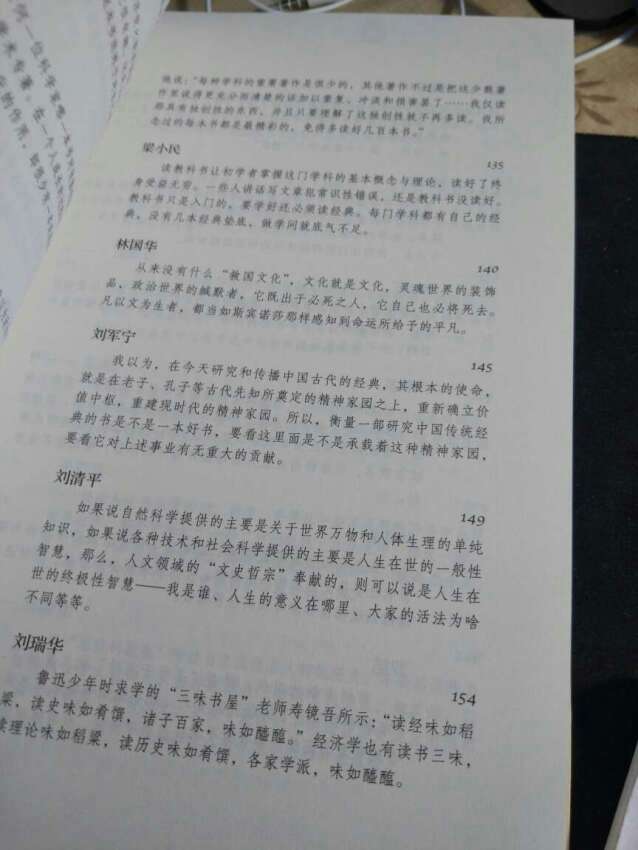 他说：“每种学科的重要著作是很少的，其他著作不过是把这少数著
作里说得更充分而清楚的话加以重复、冲淡和损害罢了……我仅读
那具有独创性的东西，并且只要理解了这独创性就不再多读。我所
念过的每本书都是最精彩的，免得多读好几百本书。”
梁小民 135
读教科书让初学者掌握这门学科的基本概念与理论，读好了终
身受益无穷。一些人讲话写文章犯常识性错误，还是教科书没读好。
教科书只是入门的，要学好还必须读经典。每门学科都有自己的经
典，没有几本经典垫底，做学问就底气不足。
林国华 140
从来没有什么“救国文化”，文化就是文化，灵魂世界的装饰
品，政治世界的缄默者，它既出于必死之人，它自己也必将死去。
凡以文为生者，都当如斯宾诺莎那样感知到命运所给予的平凡。
刘军宁 145
我以为，在今天研究和传播中国古代的经典，其根本的使命，
就是在老子、孔子等古代先知所奠定的精神家园之上，重新确立价
值中枢，重建现时代的精神家园。所以，衡量一部研究中国传统经
典的书是不是一本好书，要看这里面是不是承载着这种精神家园，
要看它对上述事业有无重大的贡献。
刘清平 149
如果说自然科学提供的主要是关于世界万物和人体生理的单纯
知识，如果说各种技术和社会科学提供的主要是人生在世的一般性
智慧，那么，人文领域的“文史哲宗”奉献的，则可以说是人生在
世的终极性智慧——我是谁、人生的意义在哪里、大家的活法为啥
不同等等。
刘瑞华 154
鲁迅少年时求学的“三味书屋”老师寿镜吾所示：“读经味如稻
粱，读史味如肴馔，诸子百家，味如醯醢。”经济学也有读书三味，
读理论味如稻粱，读历史味如肴馔，各家学派，味如醯醢。